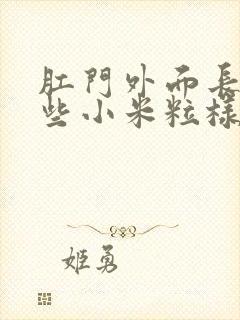 肛門外而長
些小米粒樣
姬勇